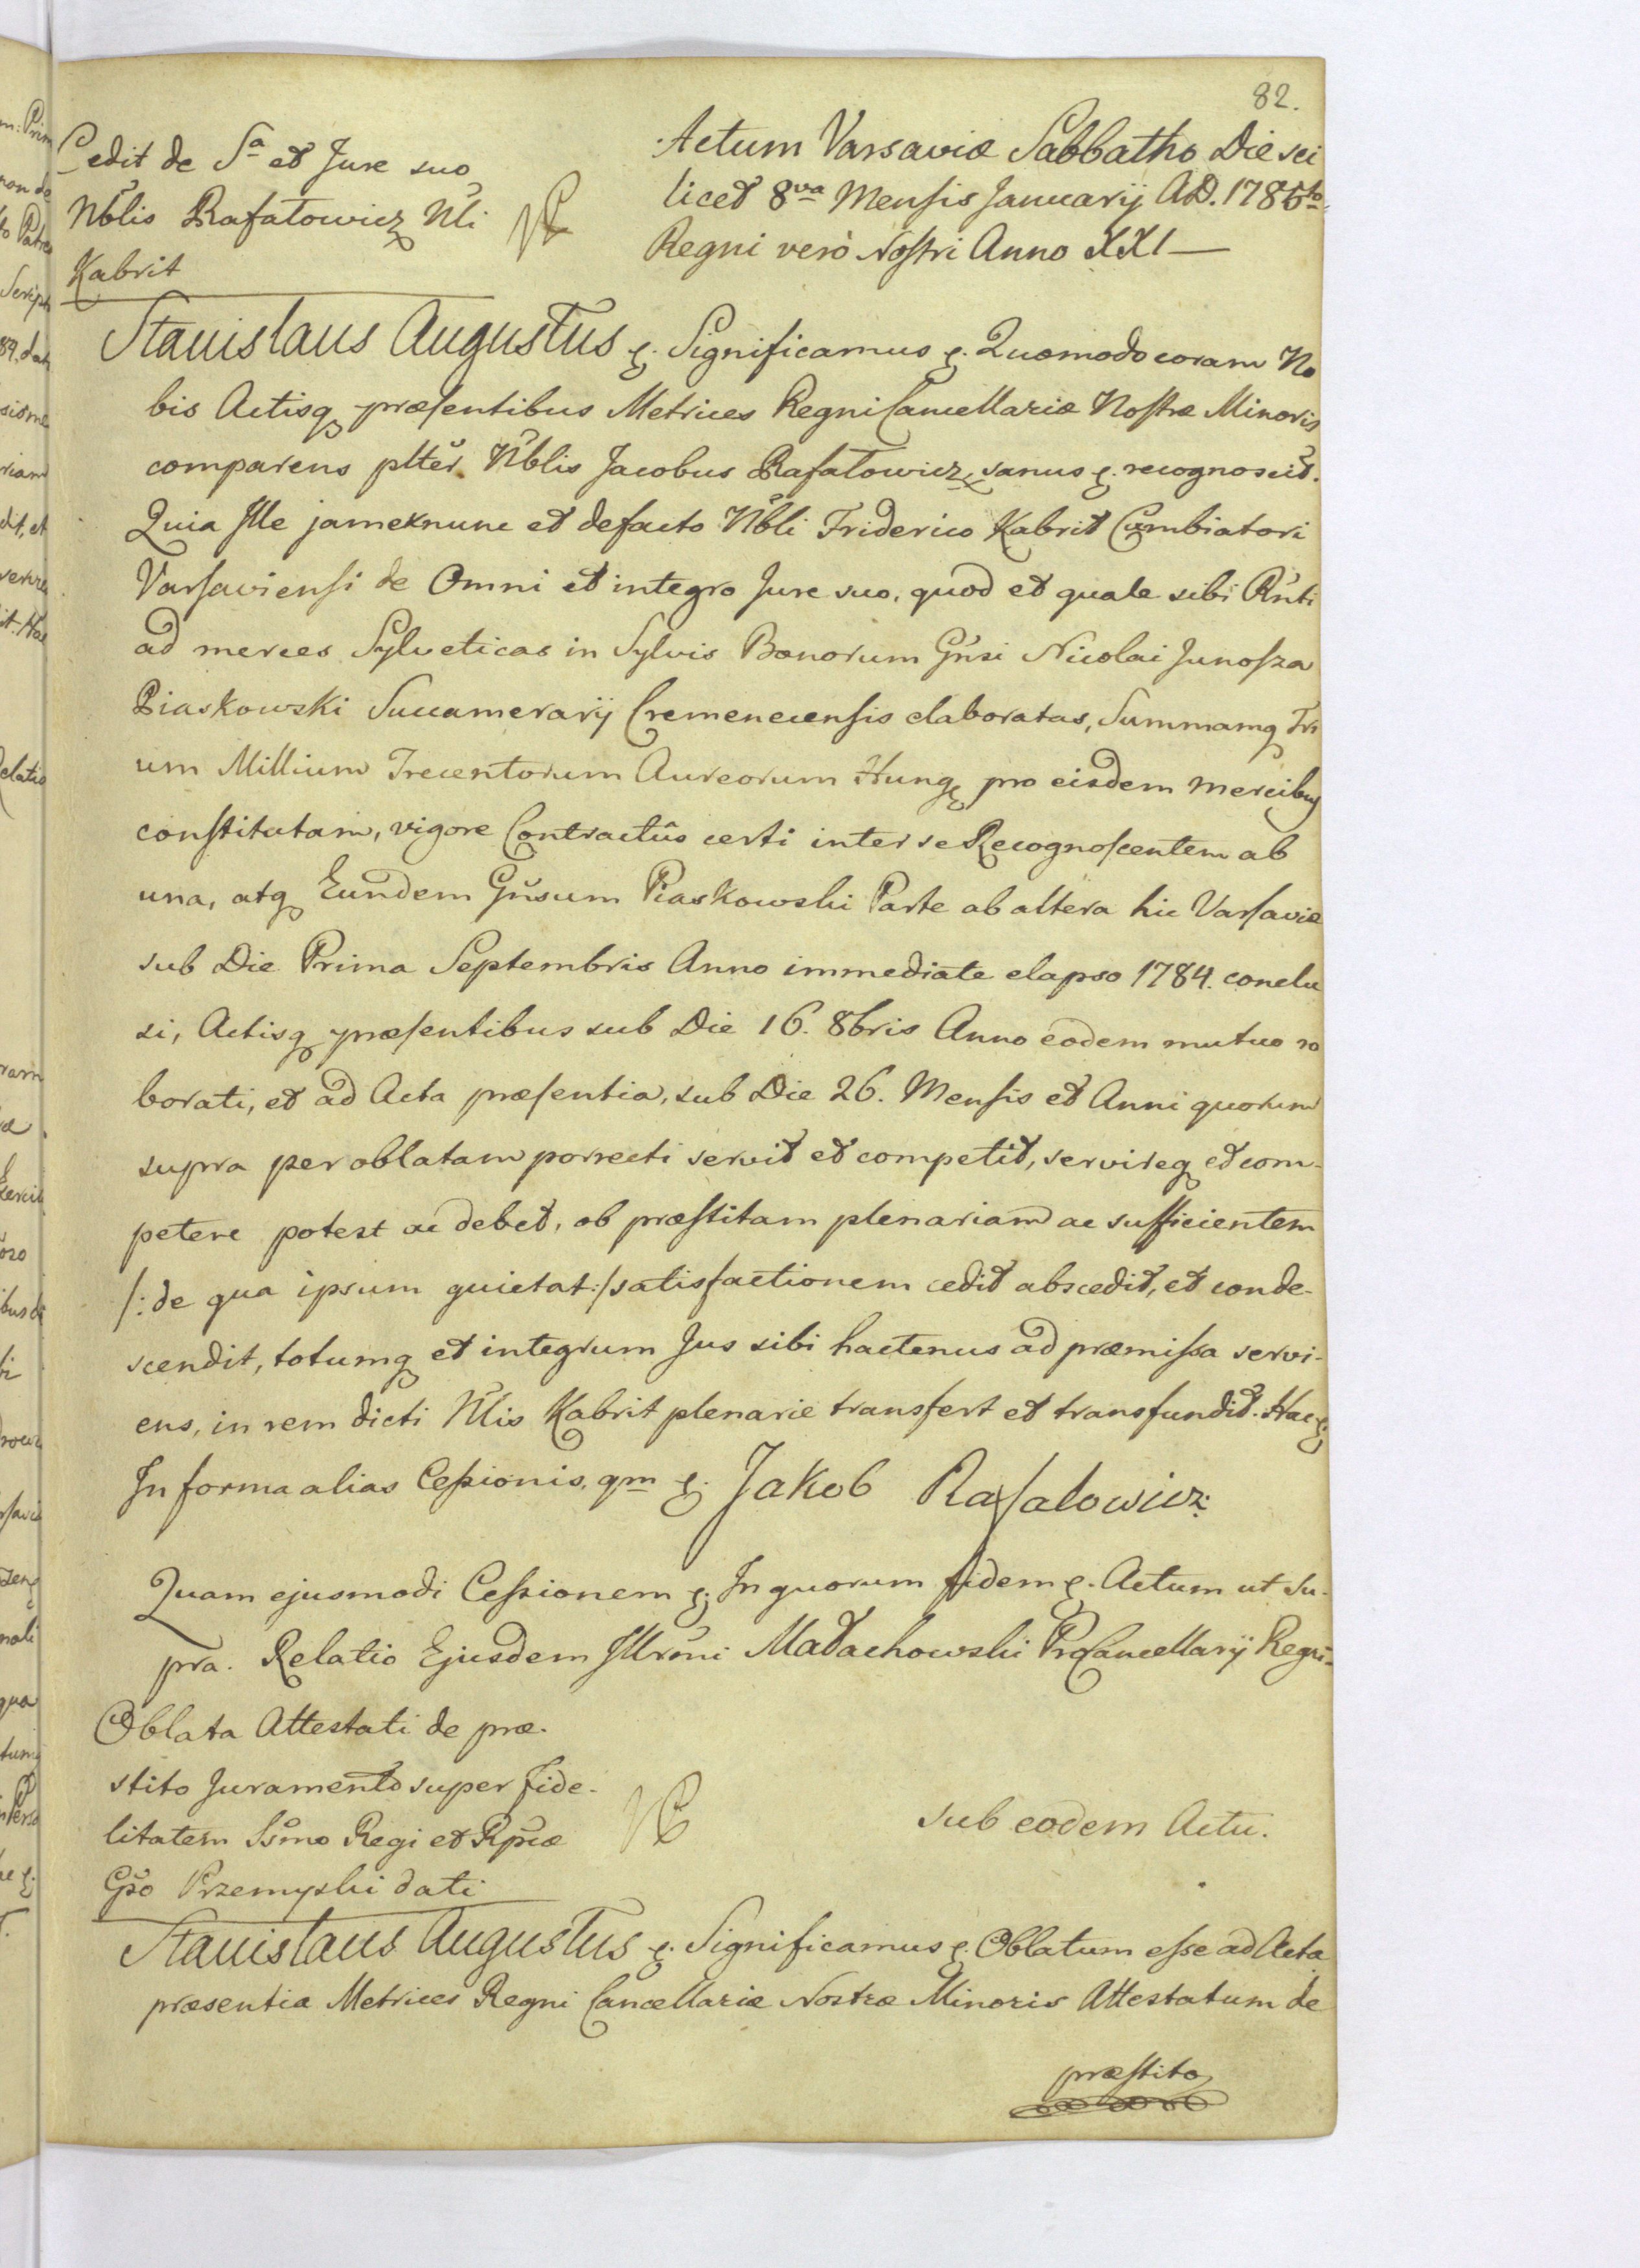 82.
Cedit de Sa et Jure suo
Nblis Rafałowicz Nli
Kabrit
Actum Varsaviæ Sabbatho Die sci
licet 8va Mensis Januarij AD. 1785to
Regni verò Nostri Anno XXI
Stanislaus Augustus &. Significamus &. Quomodo coram No
bis Actisq præsentibus Metrices Regni Cancellariæ Nostræ Minoris
comparens plter Nblis Jacobus Rafałowicz, sanus &. recognoscit.
Quia Ille jamexnunc et defacto Nbli Friderico Kabrit Cambiatori
Varsaviensi de Omni et integro Jure suo, quod et quale sibi Rnti
ad merces Sylveticas in Sylvis Bonorum Gnsi Nicolai Junosza
Piaskowski Succamerarij Cremenecensis elaboratas, Summamq Tri
um Millium Trecentorum Aureorum Hung, pro eisdem mercibus
constitutam, vigore Contractûs certi inter se Recognoscentem ab
una, atq Eundem Gnsum Piaskowski Parte ab altera hic Varsaviæ
sub Die Prima Septembris Anno immediate elapso 1784. conclu
si, Actisq præsentibus sub Die 16. 8bris Anno eodem mutuo ro
borati, et ad Acta præsentia, sub Die 26. Mensis et Anni quorum
supra per oblatam porrecti servit et competit, servireq et com-
petere potest ac debet, ob præstitam plenariam ac sufficientem
/: de qua ipsum quietat :/ satisfactionem cedit abscedit, et conde-
scendit, totumq et integrum Jus sibi hactenus ad præmissa servi-
ens, in rem dicti Nlis Kabrit plenarie transfert et transfundit. Hac &.
In forma alias Cessionis, qm &. Jakob Rafalowicz.
Quam ejusmodi Cessionem &. In quorum fidem &. Actum ut su-
pra. Relatio Ejusdem Illrmi Małachowski ProCancellarij Regni
Oblata Attestati de præ-
stito Juramento super fide-
litatem Ssmo Regi et Rpcæ
Gso Przemyski dati
sub eodem Actu.
Stanislaus Augustus &. Significamus &. Oblatum esse ad Acta
præsentia Metrices Regni Cancellariæ Nostræ Minoris Attestatum de
præstito